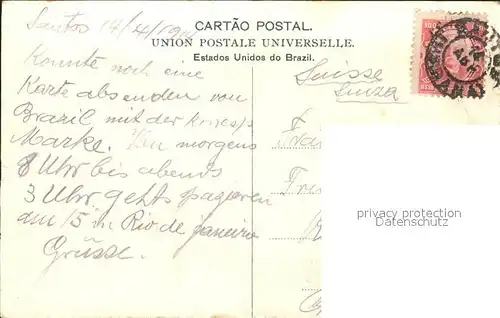 Santos 14/4/19
CARTÃO POSTAL.
UNION POSTALE UNIVERSELLE.
Estados Unidos do Brazil.
Konnte noch eine
Karte absenden von
Brazil mit der
Marke. Von morgens
8 Uhr bis abends
3 Uhr gehts spazieren
am 15 in Rio de janeiro
Grüsse.
Suisse
Suiza
privacy protection
Datenschutz